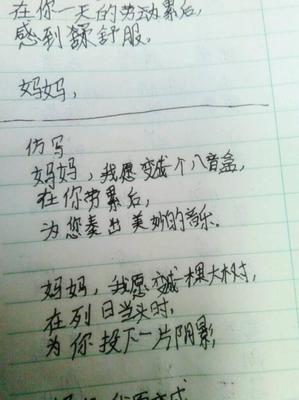 在你一天的劳动累后,
感到舒服。
妈妈,
仿写
妈妈,我愿变成个八音盒,
在你劳累后,
为您奏出美妙的音乐。
妈妈,我愿变成棵大树,
在列日当头时,
为你投下一片阴影,
我愿变成